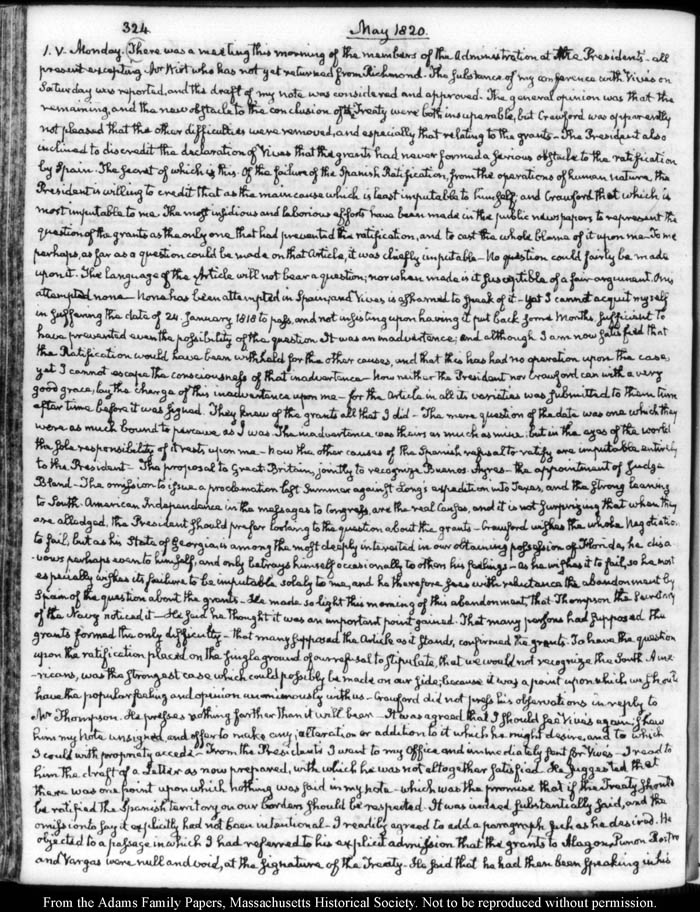 324.
May 1820.
1. V. Monday. There was a meeting this morning of the members of the Administration at the President's - all
present excepting Mr Wirt who has not yet returned from Richmond. The substance of my conference with Vives on
Saturday was reported, and the draft of my note was considered and approved. The general opinion was that the
remaining and the new obstacle to the conclusion of the Treaty were both insuperable, but Crawford was apparently
not pleased that the other difficulties were removed, and especially that relating to the grants - The President also
inclined to discredit the declaration of Vives that the grants had never formed a serious obstacle to the ratification
by Spain. The secret of which is this. Of the failure of the Spanish Ratification, from the operations of human nature, the
President is willing to credit that as the main cause which is least imputable to himself, and Crawford that which is
most imputable to me. The most insidious and laborious efforts have been made in the public newspapers to represent the
question of the grants as the only one that had prevented the ratification, and to cast the whole blame of it upon me - To me
perhaps, as far as a question could be made on that Article, it was chiefly imputable - No question could fairly be made
upon it. The language of the Article will not bear a question; nor when made is it susceptible of a fair argument. Onis
attempted none - None has been attempted in Spain; and Vives is ashamed to speak of it - Yet I cannot acquit myself
in suffering the date of 24. January 1818 to pass, and not insisting upon having it put back some Months sufficient to
have prevented even the possibility of the question. It was an inadvertence; and although I am now satisfied that
the Ratification would have been withheld for the other causes, and that this has had no operation upon the case,
yet I cannot escape the consciousness of that inadvertence - Now neither the President nor Crawford can with a very
good grace, lay the charge of this inadvertence upon me - for the Article in all its varieties was submitted to them time
after time before it was signed. They knew of the grants all that I did - The mere question of the date was one which they
were as much bound to perceive as I was. The inadvertence was theirs as much as mine. but in the eyes of the world
the sole responsibility of it rests upon me - Now the other causes of the Spanish refusal to ratify are imputable entirely
to the President - The proposal to Great Britain, jointly to recognize Buenos Ayres - the appointment of Judge
Bland - The omission to issue a proclamation last Summer against Long's expedition into Texas, and the strong leaning
to South-American Independence in the messages to Congress, are the real causes, and it is not surprizing that when they
are alledged, the President should prefer looking to the question about the grants - Crawford wishes the whole Negotiation
to fail, but as his State of Georgia is among the most deeply interested in our obtaining possession of Florida, he disa-
-vows perhaps even to himself, and only betrays himself occasionally to others his feelings - as he wishes it to fail, so he most
especially wishes its failure to be imputable solely to me, and he therefore sees with reluctance the abandonment by
Spain of the question about the grants - He made so light this morning of this abandonment, that Thompson the Secretary
of the Navy noticed it - He said he thought it was an important point gained. That many persons had supposed the
grants formed the only difficulty - that many supposed the Article as it stands, confirmed the grants. To have the question
upon the ratification placed on the single ground of our refusal to stipulate, that we would not recognize the South Ame-
-ricans, was the strongest case which could possibly be made on our side; because it was a point upon which we should
have the popular feeling and opinion unanimously with us - Crawford did not press his observations in reply to
Mr Thompson. He presses nothing farther than it will bear - It was agreed that I should see Vives again; shew
him my Note unsigned, and offer to make any alteration or addition to it which he might desire, and to which
I could with propriety accede - From the President's I went to my office and immediately sent for Vives - I read to
him the draft of a Letter as now prepared, with which he was not altogether satisfied. He suggested that
there was one point upon which nothing was said in my note - which was the promise that if the Treaty should
be ratified the Spanish territory on our borders should be respected. It was indeed substantially said, and the
omission to say it explicitly had not been intentional - I readily agreed to add a paragraph such as he desired. He
objected to a passage in which I had referred to his explicit admission that the grants to Alagon, Punon Rostro
and Vargas were null and void, at the signature of the Treaty - He said that he had then been speaking in his
From the Adams Family Papers, Massachusetts Historical Society. Not to be reproduced without permission.